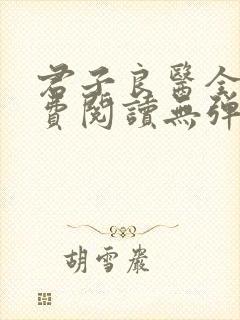 君子良醫全
費閱讀無彈
胡雪巖